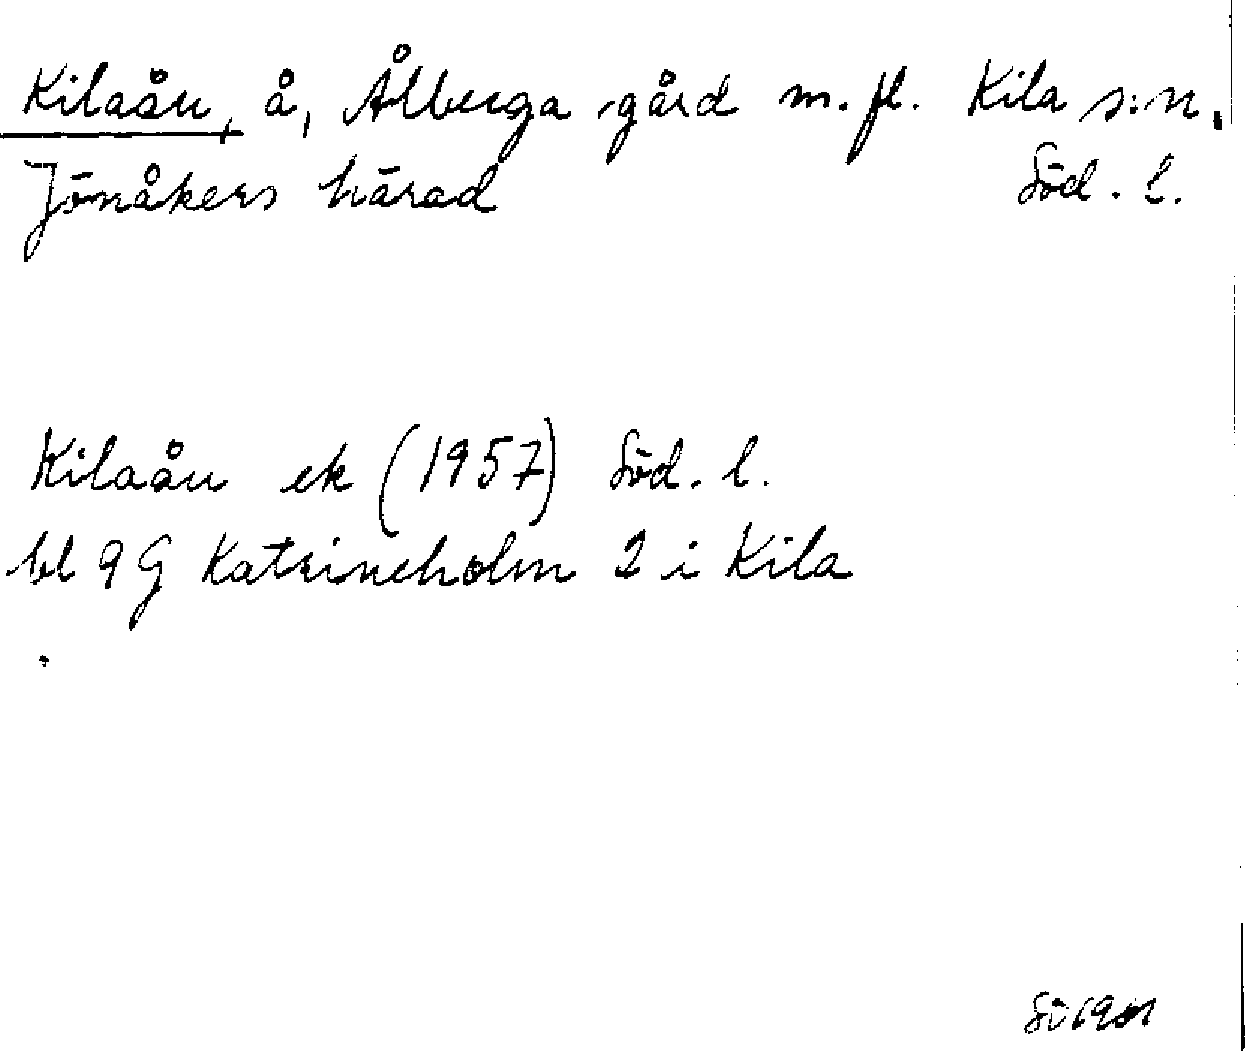 Kilaån, å, Ålberga gård m.fl. Kila s:n,
Jönåkers härad Söd. l.
Kilaån ek (1957) Söd. l.
bl 9G Katrineholm 2 i Kila